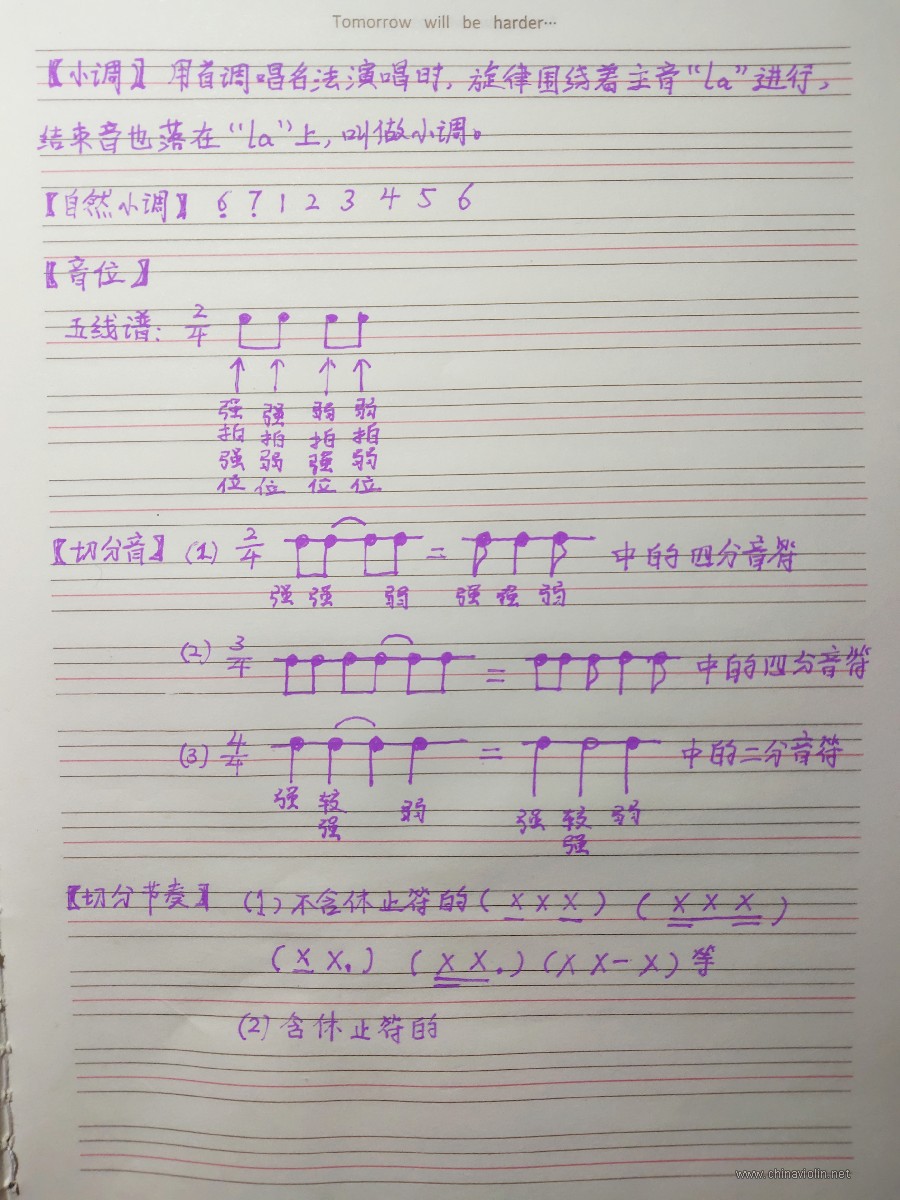 Tomorrow will be harder…
【小调】用首调唱名法演唱时，旋律围绕着主音“la”进行，
结束音也落在“la”上，叫做小调。
【自然小调】 6̣ 7̣ 1 2 3 4 5 6
【音位】
五线谱： 2/4
强拍强位 强拍弱位 弱拍强位 弱拍弱位
【切分音】（1） 2/4 = 中的四分音符
强 强 弱 强 强 弱
（2） 3/4 = 中的四分音符
（3） 4/4 = 中的二分音符
强 较强 弱 强 较强 弱
【切分节奏】（1）不含休止符的（X X X）（X X X）
（X X.）（X X.）（X X－X）等
（2）含休止符的
www.chinaviolin.net